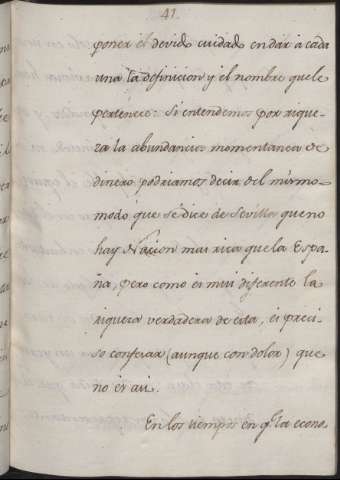 41
poner el devido cuidado en dar à cada
una la definicion y el nombre que le
pertenece: Si entendemos por rique-
za la abundancia momentanea de
dinero podriamos decir del mismo
modo que se dice de Sevilla que no
hay Nacion mas rica que la Espa-
ña, pero como es mui diferente la
riqueza verdadera de esta, es preci-
so confesar (aunque con dolor) que
no es asi.
En los tiempos en q.e la econo